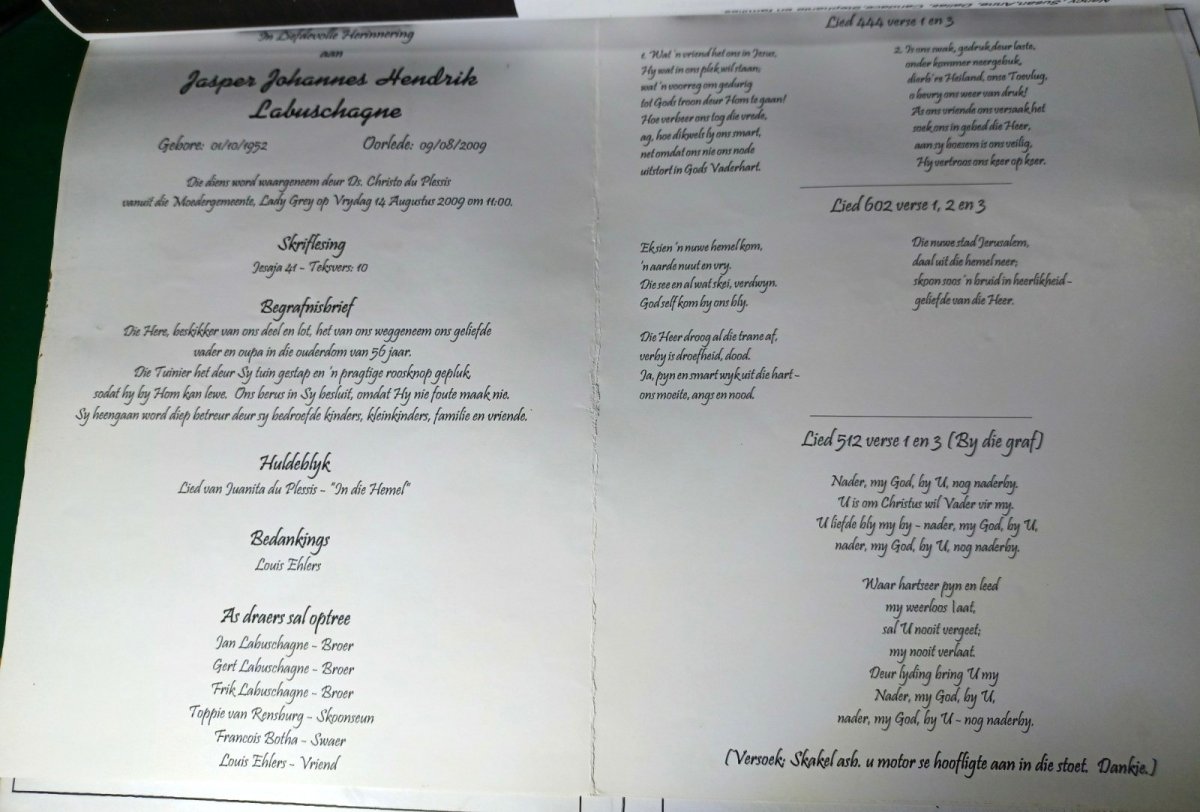 In Liefdevolle Herinnering
aan
Jasper Johannes Hendrik
Labuschagne
Gebore: 01/10/1952 Oorlede: 09/08/2009
Die diens word waargeneem deur Ds. Christo du Plessis
vanuit die Moedergemeente, Lady Grey op Vrydag 14 Augustus 2009 om 11:00.
Skriflesing
Jesaja 41 - Teksvers: 10
Begrafnisbrief
Die Here, beskikker van ons deel en lot, het van ons weggeneem ons geliefde
vader en oupa in die ouderdom van 56 jaar.
Die Tuinier het deur Sy tuin gestap en 'n pragtige roosknop gepluk,
sodat hy by Hom kan lewe. Ons berus in Sy besluit, omdat Hy nie foute maak nie.
Sy heengaan word diep betreur deur sy bedroefde kinders, kleinkinders, familie en vriende.
Huldeblyk
Lied van Juanita du Plessis - "In die Hemel"
Bedankings
Louis Ehlers
As draers sal optree
Jan Labuschagne - Broer
Gert Labuschagne - Broer
Frik Labuschagne - Broer
Toppie van Rensburg - Skoonseun
Francois Botha - Swaer
Louis Ehlers - Vriend
Lied 444 verse 1 en 3
1. Wat 'n vriend het ons in Jesus,
Hy wat in ons plek wil staan;
wat 'n voorreg om gedurig
tot Gods troon deur Hom te gaan!
Hoe verbeer ons tog die vrede,
ag, hoe dikwels ly ons smart,
net omdat ons nie ons node
uitstort in Gods Vaderhart.
2. Is ons swak, gedruk deur laste,
onder kommer neergebuk,
dierb're Heiland, onse Toevlug,
o bevry ons weer van druk!
As ons vriende ons versaak het
soek ons in gebed die Heer,
aan sy boesem is ons veilig,
Hy vertroos ons keer op keer.
Lied 602 verse 1, 2 en 3
Ek sien 'n nuwe hemel kom,
'n aarde nuut en vry.
Die see en al wat skei, verdwyn.
God self kom by ons bly.
Die Heer droog al die trane af,
verby is droefheid, dood.
Ja, pyn en smart wyk uit die hart -
ons moeite, angs en nood.
Die nuwe stad Jerusalem,
daal uit die hemel neer;
skoon soos 'n bruid in heerlikheid -
geliefde van die Heer.
Lied 512 verse 1 en 3 (By die graf)
Nader, my God, by U, nog naderby.
U is om Christus wil Vader vir my.
U liefde bly my by - nader, my God, by U,
nader, my God, by U, nog naderby.
Waar hartseer pyn en leed
my weerloos laat,
sal U nooit vergeet;
my nooit verlaat.
Deur lyding bring U my
Nader, my God, by U,
nader, my God, by U - nog naderby.
(Versoek; Skakel asb. u motor se hoofligte aan in die stoet. Dankie.)